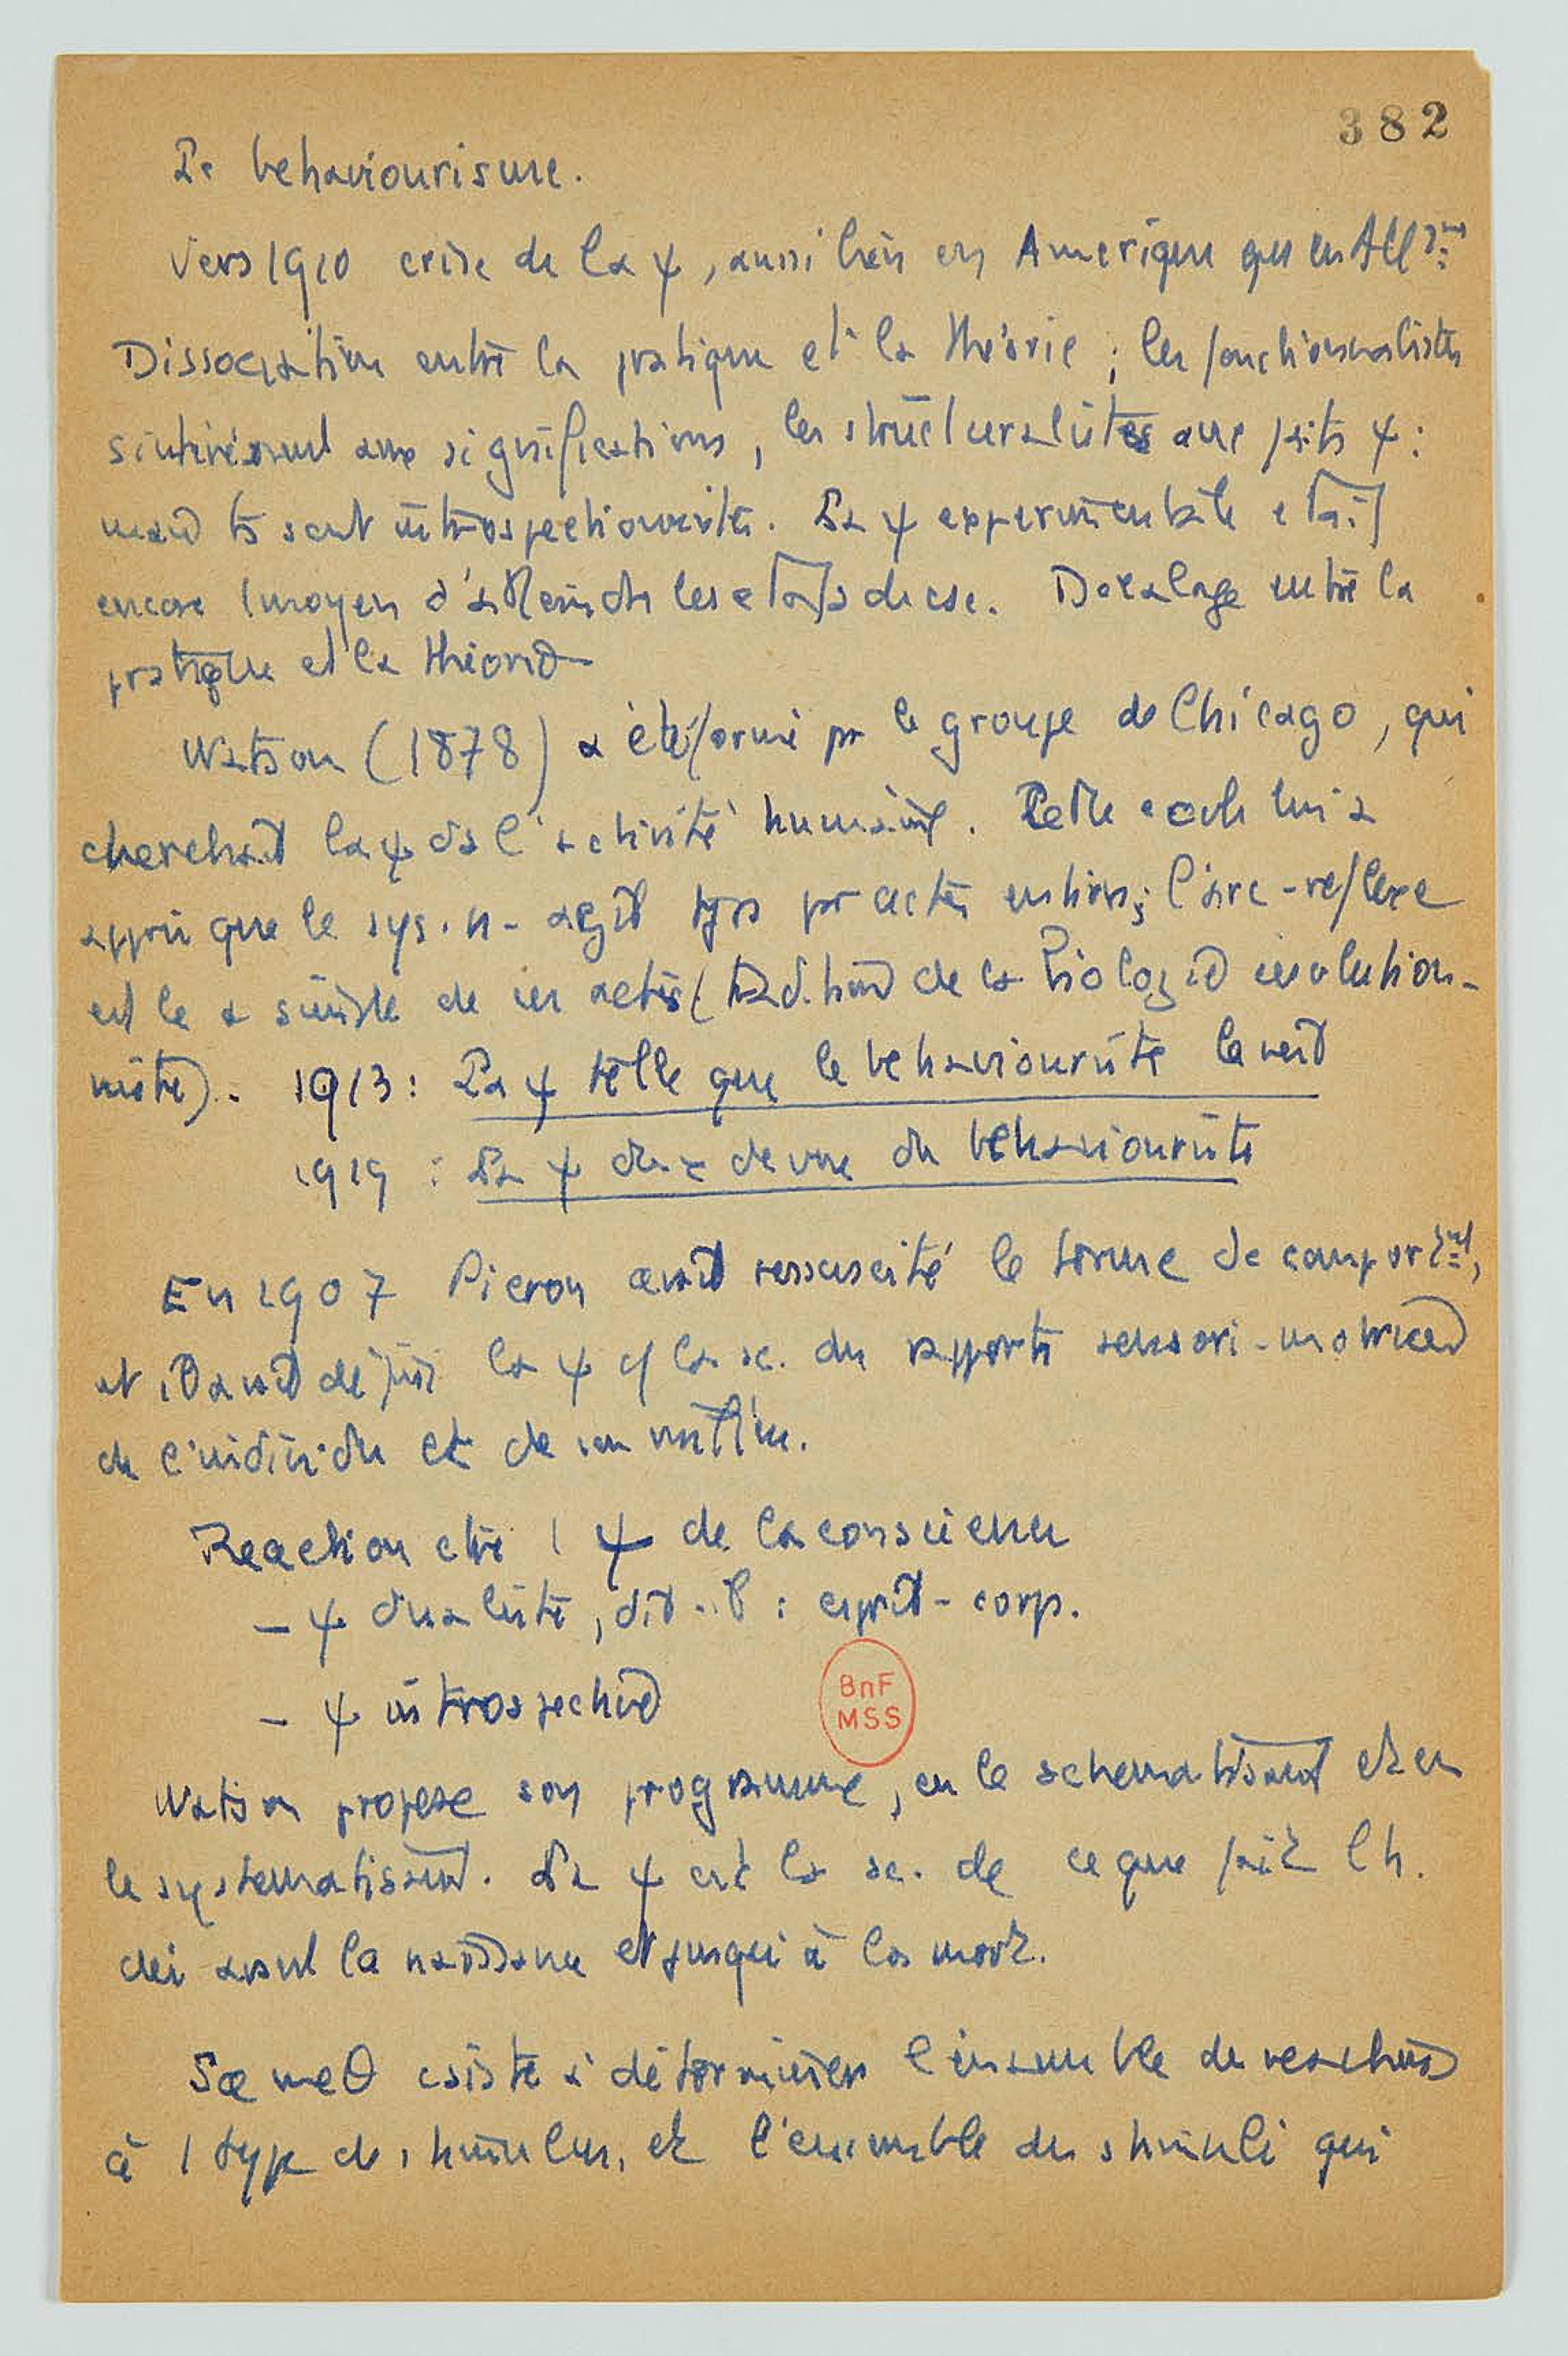 382
Le behaviourisme.
Vers 1910 crise de la ψ, aussi bien en Amerique qu'en All
Dissociation entre la pratique et la théorie ; les fonctionnalistes
s'intéressent aux significations, les structuralistes aux faits ψ :
mais ts sont introspectionnistes. La ψ experimentale etait
encore 1 moyen d'atteindre les etats de csc. Decalage entre la
pratique et la théorie
Watson (1878) a été formé pr le groupe de Chicago, qui
cherchait la ψ ds l'activité humaine. Cette ecole lui a
appris que le sys. n. agit tjrs par actes entiers ; l'arc-reflexe
est le + simple de ces actes (tradition de la biologie evolution-
niste). 1913 : La ψ telle que le behaviouriste la voit
1919 : La ψ du de vue du behaviouriste
En 1907 Pieron avait ressuscité le terme de comport^mt,
et il avait défini la ψ c/ la sc. des rapports sensori-motrices
de l'individu et de son milieu.
Reaction ctre 1 ψ de la conscience
- ψ dualiste, dit-il : esprit - corps.
- ψ introspective
BnF
MSS
Watson propose son programme, en le schematisant et en
le systematisant. La ψ est la sc. de ce que fait l'h.
dès avant la naissance et jusqu'à la mort.
Sa meθ csiste à déterminer l'ensemble des reactions
à 1 type de stimulus, et l'ensemble des stimuli qui